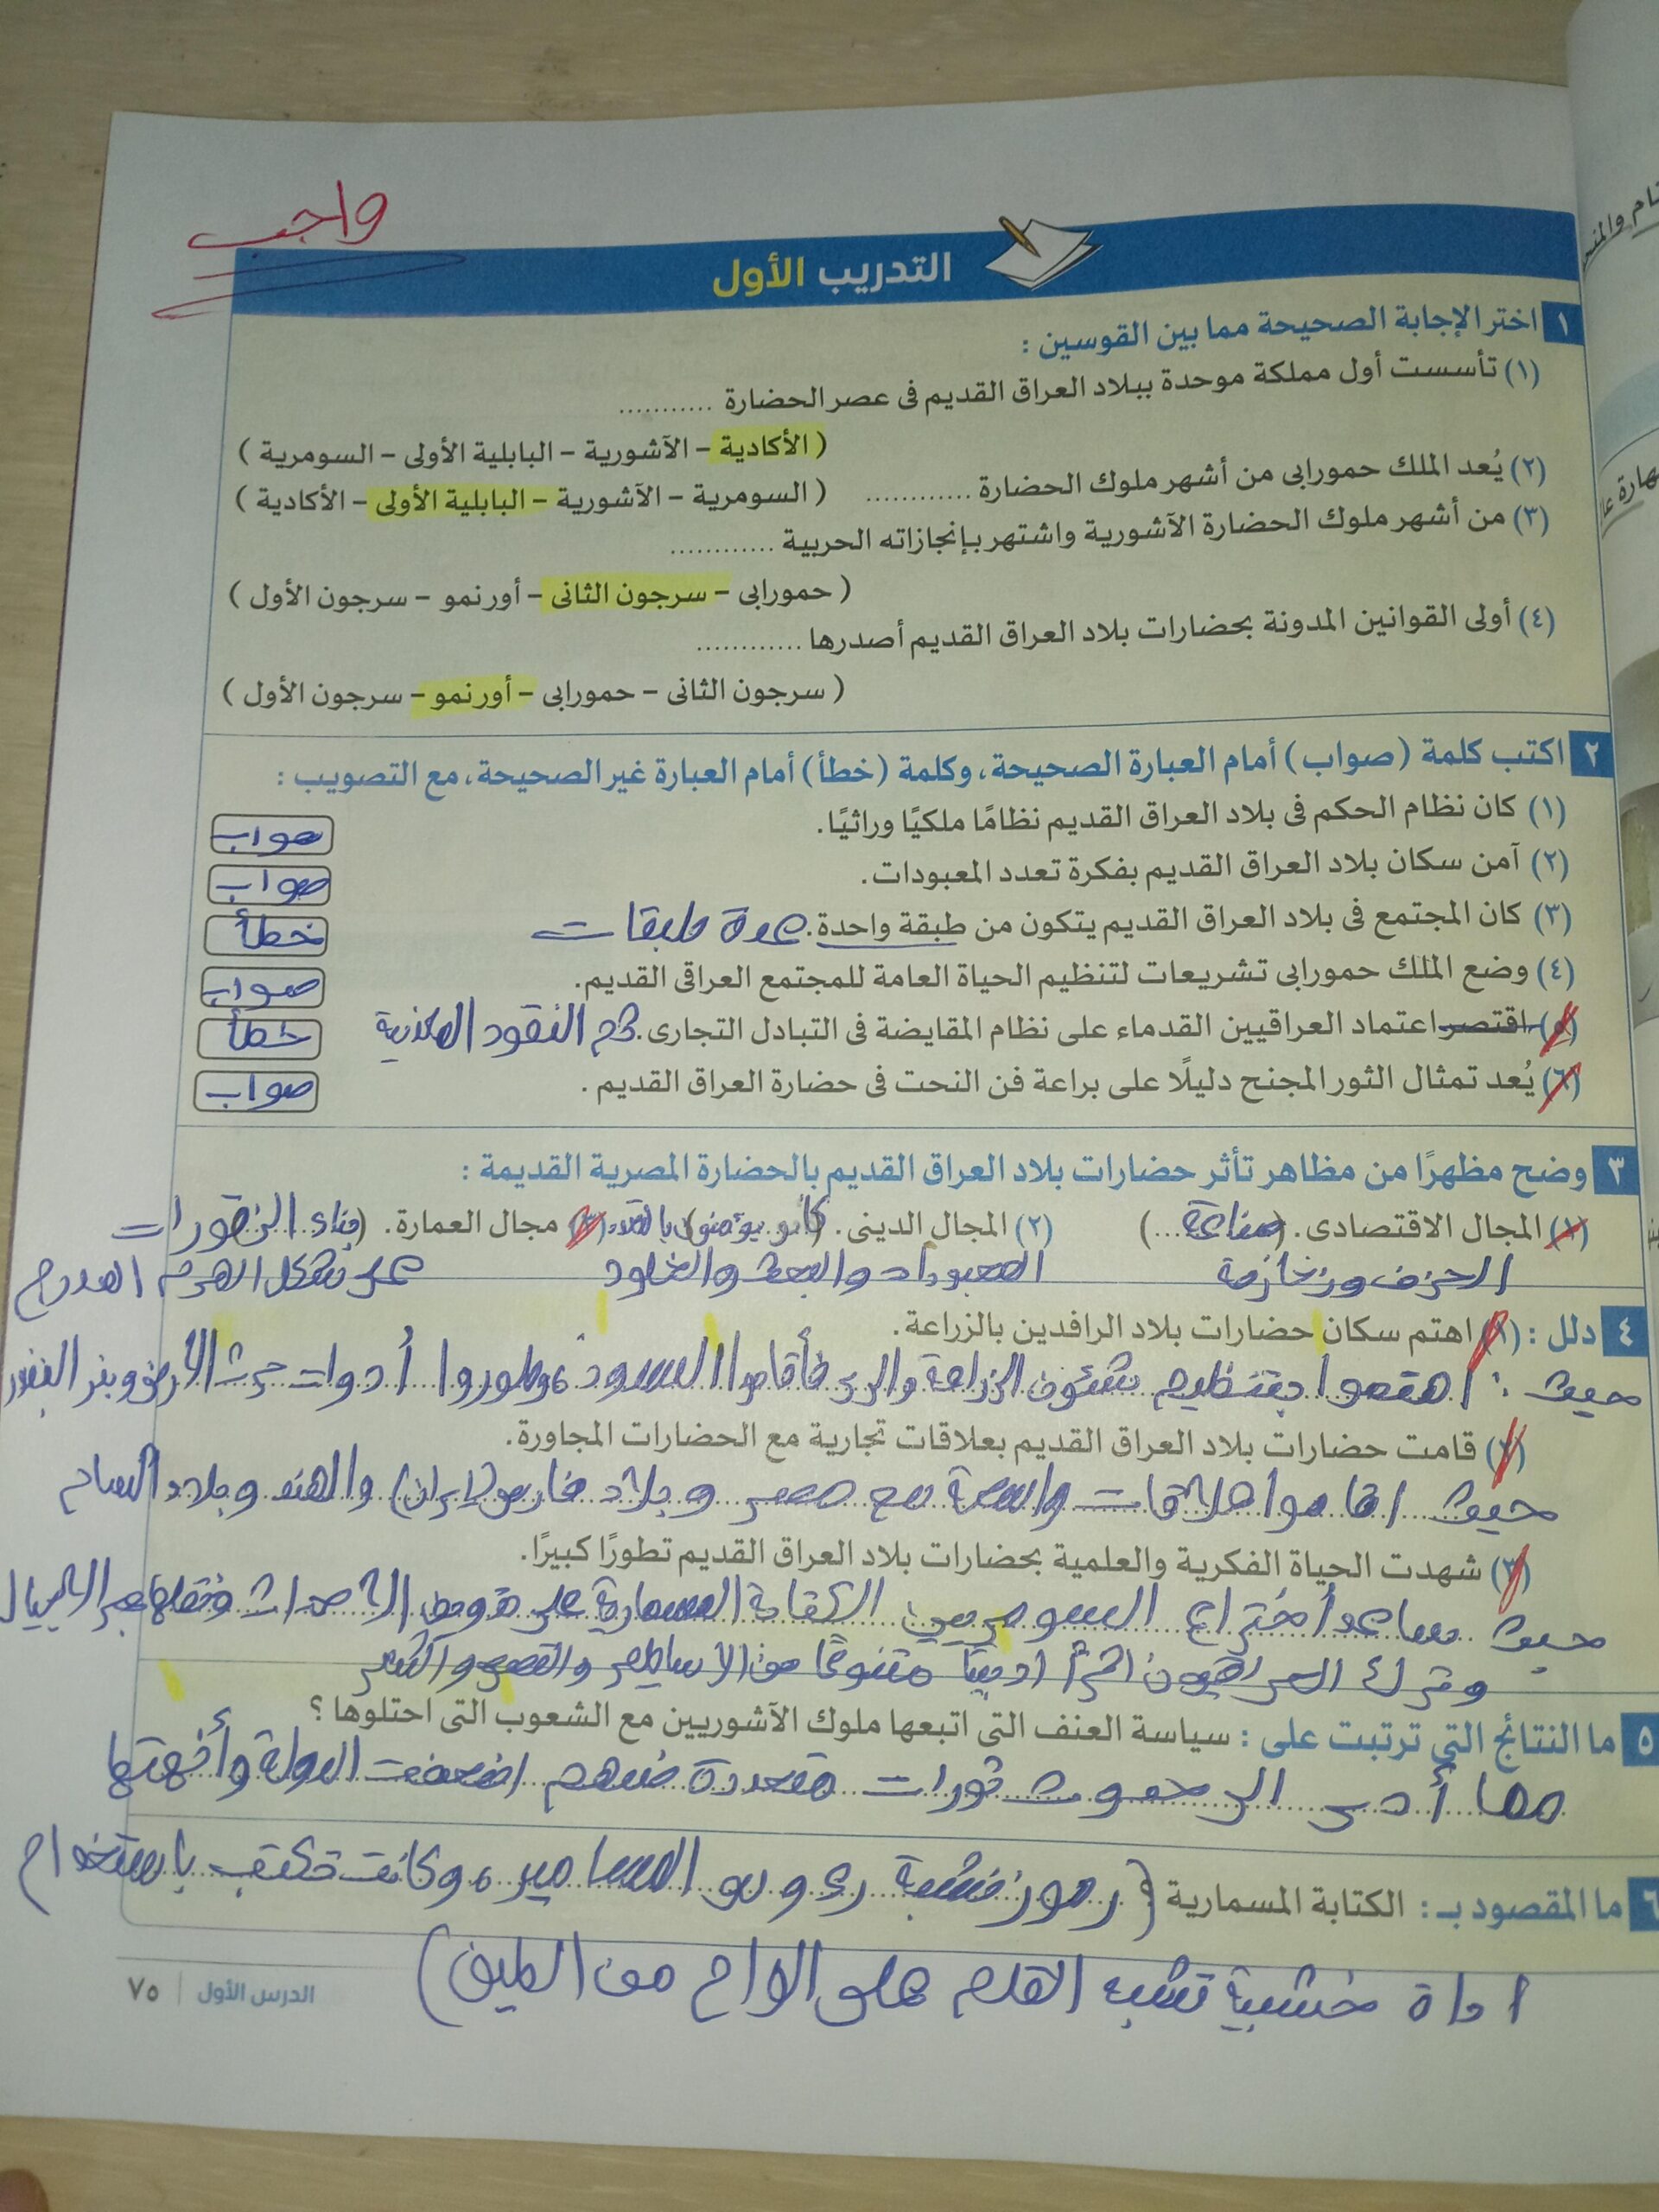 واجب
التدريب الأول
١ اختر الإجابة الصحيحة مما بين القوسين :
(١) تأسست أول مملكة موحدة ببلاد العراق القديم فى عصر الحضارة ............
( الأكادية – الآشورية – البابلية الأولى – السومرية )
(٢) يُعد الملك حمورابى من أشهر ملوك الحضارة ............ ( السومرية – الآشورية – البابلية الأولى – الأكادية )
(٣) من أشهر ملوك الحضارة الآشورية واشتهر بإنجازاته الحربية ............
( حمورابى – سرجون الثانى – أورنمو – سرجون الأول )
(٤) أولى القوانين المدونة بحضارات بلاد العراق القديم أصدرها ............
( سرجون الثانى – حمورابى – أورنمو – سرجون الأول )
٢ اكتب كلمة (صواب) أمام العبارة الصحيحة، وكلمة (خطأ) أمام العبارة غير الصحيحة، مع التصويب :
(١) كان نظام الحكم فى بلاد العراق القديم نظامًا ملكيًا وراثيًا. صواب
(٢) آمن سكان بلاد العراق القديم بفكرة تعدد المعبودات. صواب
(٣) كان المجتمع فى بلاد العراق القديم يتكون من طبقة واحدة. عدة طبقات خطأ
(٤) وضع الملك حمورابى تشريعات لتنظيم الحياة العامة للمجتمع العراقى القديم. صواب
(٥) اقتصر اعتماد العراقيين القدماء على نظام المقايضة فى التبادل التجارى. ثم النقود المعدنية خطأ
(٦) يُعد تمثال الثور المجنح دليلًا على براعة فن النحت فى حضارة العراق القديم . صواب
٣ وضح مظهرًا من مظاهر تأثر حضارات بلاد العراق القديم بالحضارة المصرية القديمة :
(١) المجال الاقتصادى. (صناعة ...) (٢) المجال الدينى. (كانو يؤمنون بالتعدد (٣) مجال العمارة. (بناء الزقورات
الخزف وزخارفه المعبودات والبعث والخلود على شكل الهرم المدرج
٤ دلل : (١) اهتم سكان حضارات بلاد الرافدين بالزراعة.
حيث : اهتموا بتنظيم شئون الزراعة والرى فأقاموا السدود، وطوروا أدوات حرث الأرض وبذر البذور
(٢) قامت حضارات بلاد العراق القديم بعلاقات تجارية مع الحضارات المجاورة.
حيث اقاموا علاقات واسعة مع مصر وبلاد فارس (إيران) والهند وبلاد الشام
(٣) شهدت الحياة الفكرية والعلمية بحضارات بلاد العراق القديم تطورًا كبيرًا.
حيث ساعد أختراع السومريين الكتابة المسمارية على تدوين الاحداث ونقلها عبر الاجيال
وترك العراقيون اثرًا ادبيًا متنوعًا من الاساطير والقصص والشعر
٥ ما النتائج التى ترتبت على : سياسة العنف التى اتبعها ملوك الآشوريين مع الشعوب التى احتلوها ؟
مما أدى الى حدوث ثورات متعددة ضدهم اضعفت الدولة وأنهتها
٦ ما المقصود بـ : الكتابة المسمارية ؟ (رموز تشبه رءوس المسامير، وكانت تكتب باستخدام
اداة خشبية تشبه القلم على الواح من الطين)
الدرس الأول | ٧٥